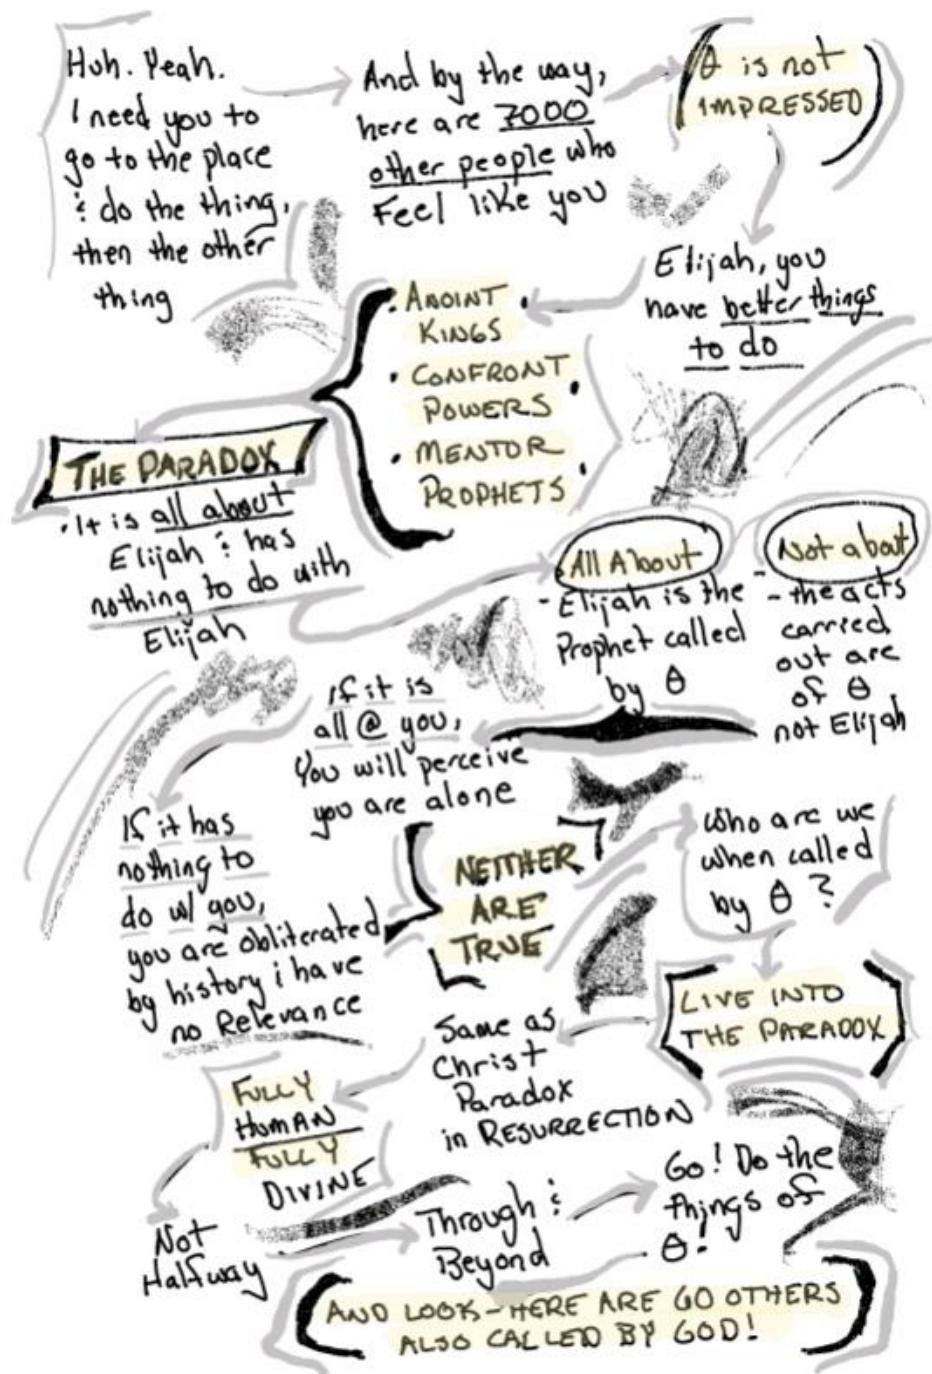 Huh. Yeah.
I need you to
go to the place
& do the thing,
then the other
thing
And by the way,
here are 7000
other people who
Feel like you
θ is not
IMPRESSED
Elijah, you
have better things
to do
• ANOINT
KINGS
• CONFRONT
POWERS
• MENTOR
PROPHETS
THE PARADOX
• It is all about
Elijah & has
nothing to do with
Elijah
All About
- Elijah is the
Prophet called
by θ
Not about
- the acts
carried
out are
of θ
not Elijah
If it is
all @ you,
You will perceive
you are alone
If it has
nothing to
do w/ you,
you are obliterated
by history & have
no Relevance
NEITHER
ARE
TRUE
Who are we
when called
by θ ?
LIVE INTO
THE PARADOX
Same as
Christ
Paradox
in RESURRECTION
FULLY
HUMAN
FULLY
DIVINE
Not
Halfway
Through &
Beyond
Go! Do the
things of
θ!
AND LOOK - HERE ARE 60 OTHERS
ALSO CALLED BY GOD!